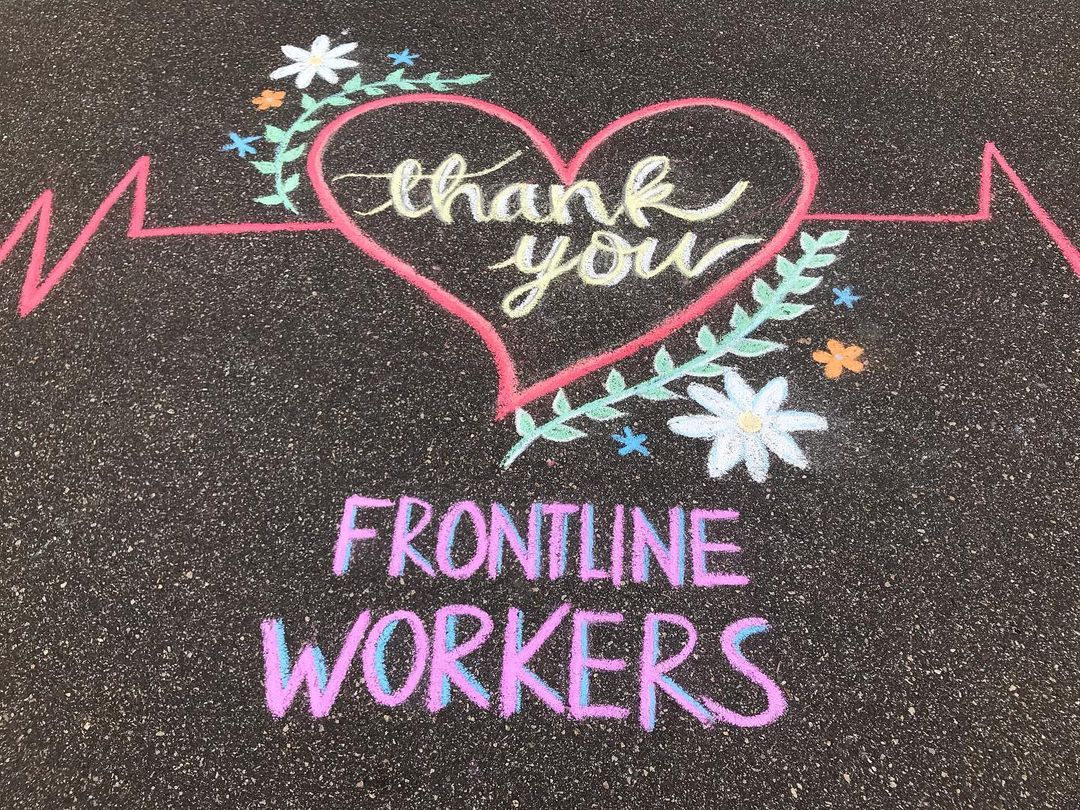 thank
you
FRONTLINE
WORKERS